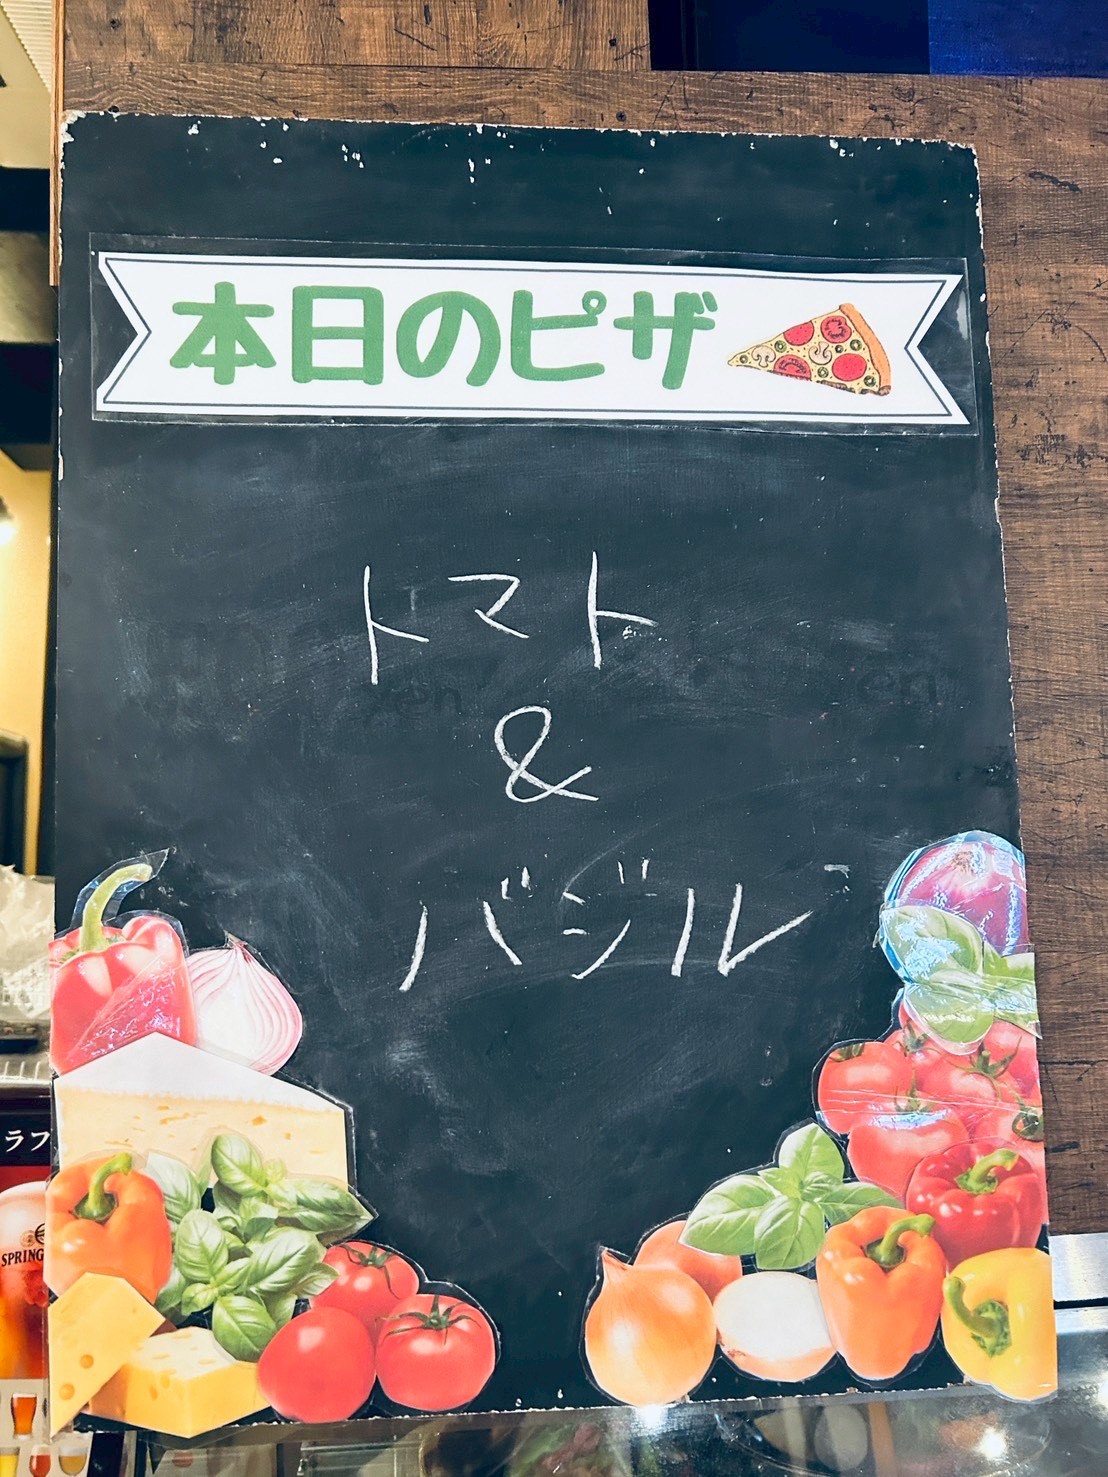 本日のピザ
トマト
&
バジル
ラフ
SPRING